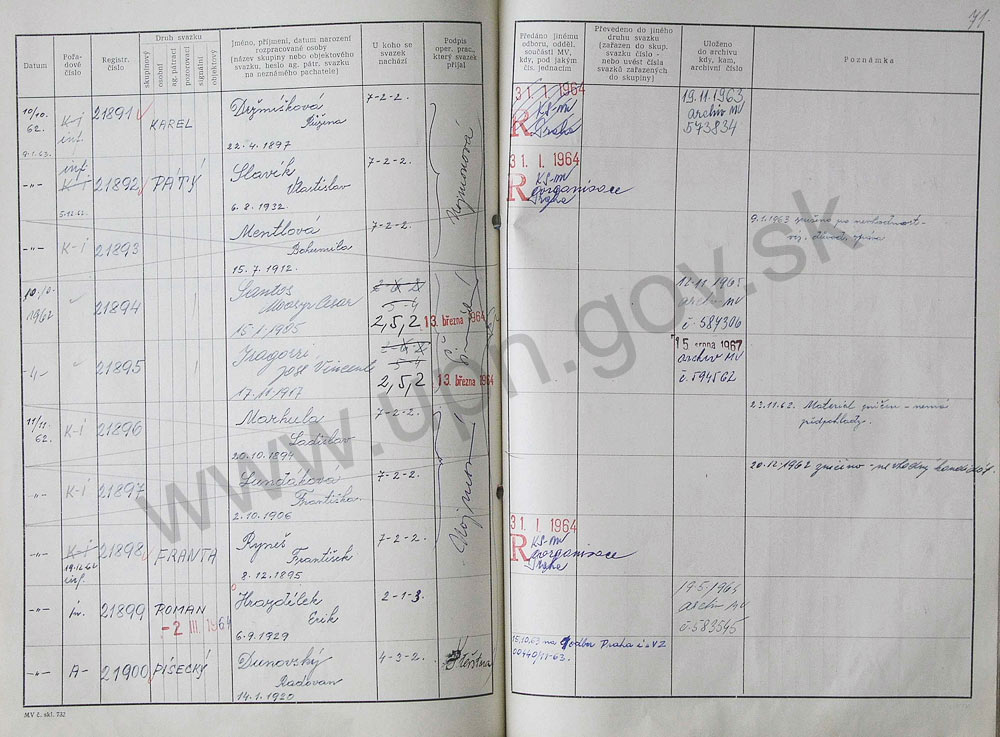 71.
Datum
Pořadové číslo
Registr. číslo
Druh svazku
skupinový
osobní
ag. pátrací
pozorovací
signální
objektový
Jméno, příjmení, datum narození rozpracované osoby
(název skupiny nebo objektového svazku, heslo ag. pátr. svazku na neznámého pachatele)
U koho se svazek nachází
Podpis oper. prac., který svazek přijal
Předáno jinému odboru, odděl. součásti MV, kdy, pod jakým čís. jednacím
Převedeno do jiného druhu svazku
(zařazen do skup. svazku číslo - nebo uvést čísla svazků zařazených do skupiny)
Uloženo do archivu kdy, kam, archivní číslo
Poznámka
10/10. 62.
9.1.63.
K-i
inf.
21891
KAREL
Držmíšková
Růžena
22. 4. 1897
7-2-2.
31. I. 1964
R
KS-MV
Praha
19.11.1963
archiv MV
573834
-"-
inf.
K-i
5.12.62.
21892
PÁTÝ
Slavík
Vlastislav
6. 8. 1932.
7-2-2.
31. I. 1964
R
KS-MV
eorganisace
Praha
-"-
K-i
21893
Mentlová
Bohumila
15. 7. 1912.
7-2-2.
9.1.1963
10.10. 1962
21894
Santos
Cesar
2,5,2
13. března 1964
12.11.1965
archiv MV
č. 584306
21895
José Vincente
2,5,2
13. března 1964
15 srpna 1967
archiv MV
č. 594562
11/11. 62.
K-i
21896
Markula
Ladislav
20.10.1894
7-2-2.
23.11.62. Materiál zničen - nemá
předpoklady.
-"-
K-i
21897
Františka
2.10.1906
7-2-2.
20.12.1962 zničeno
-"-
K-i
19.12.62
inf.
21898
FRANTA
Ryneš
František
8. 12. 1895
7-2-2.
31. I. 1964
R
KS-MV
eorganisace
Praha
-"-
21899
ROMAN
-2 III. 1964
Hrazdílek
Erik
6.9.1929
2-1-3.
archiv MV
č. 583545
-"-
A-
21900
PÍSECKÝ
Dunovský
Radovan
14.1.1920
4-3-2.
15.10.63 na odbor Praha
MV č. skl. 732
www.upn.gov.sk